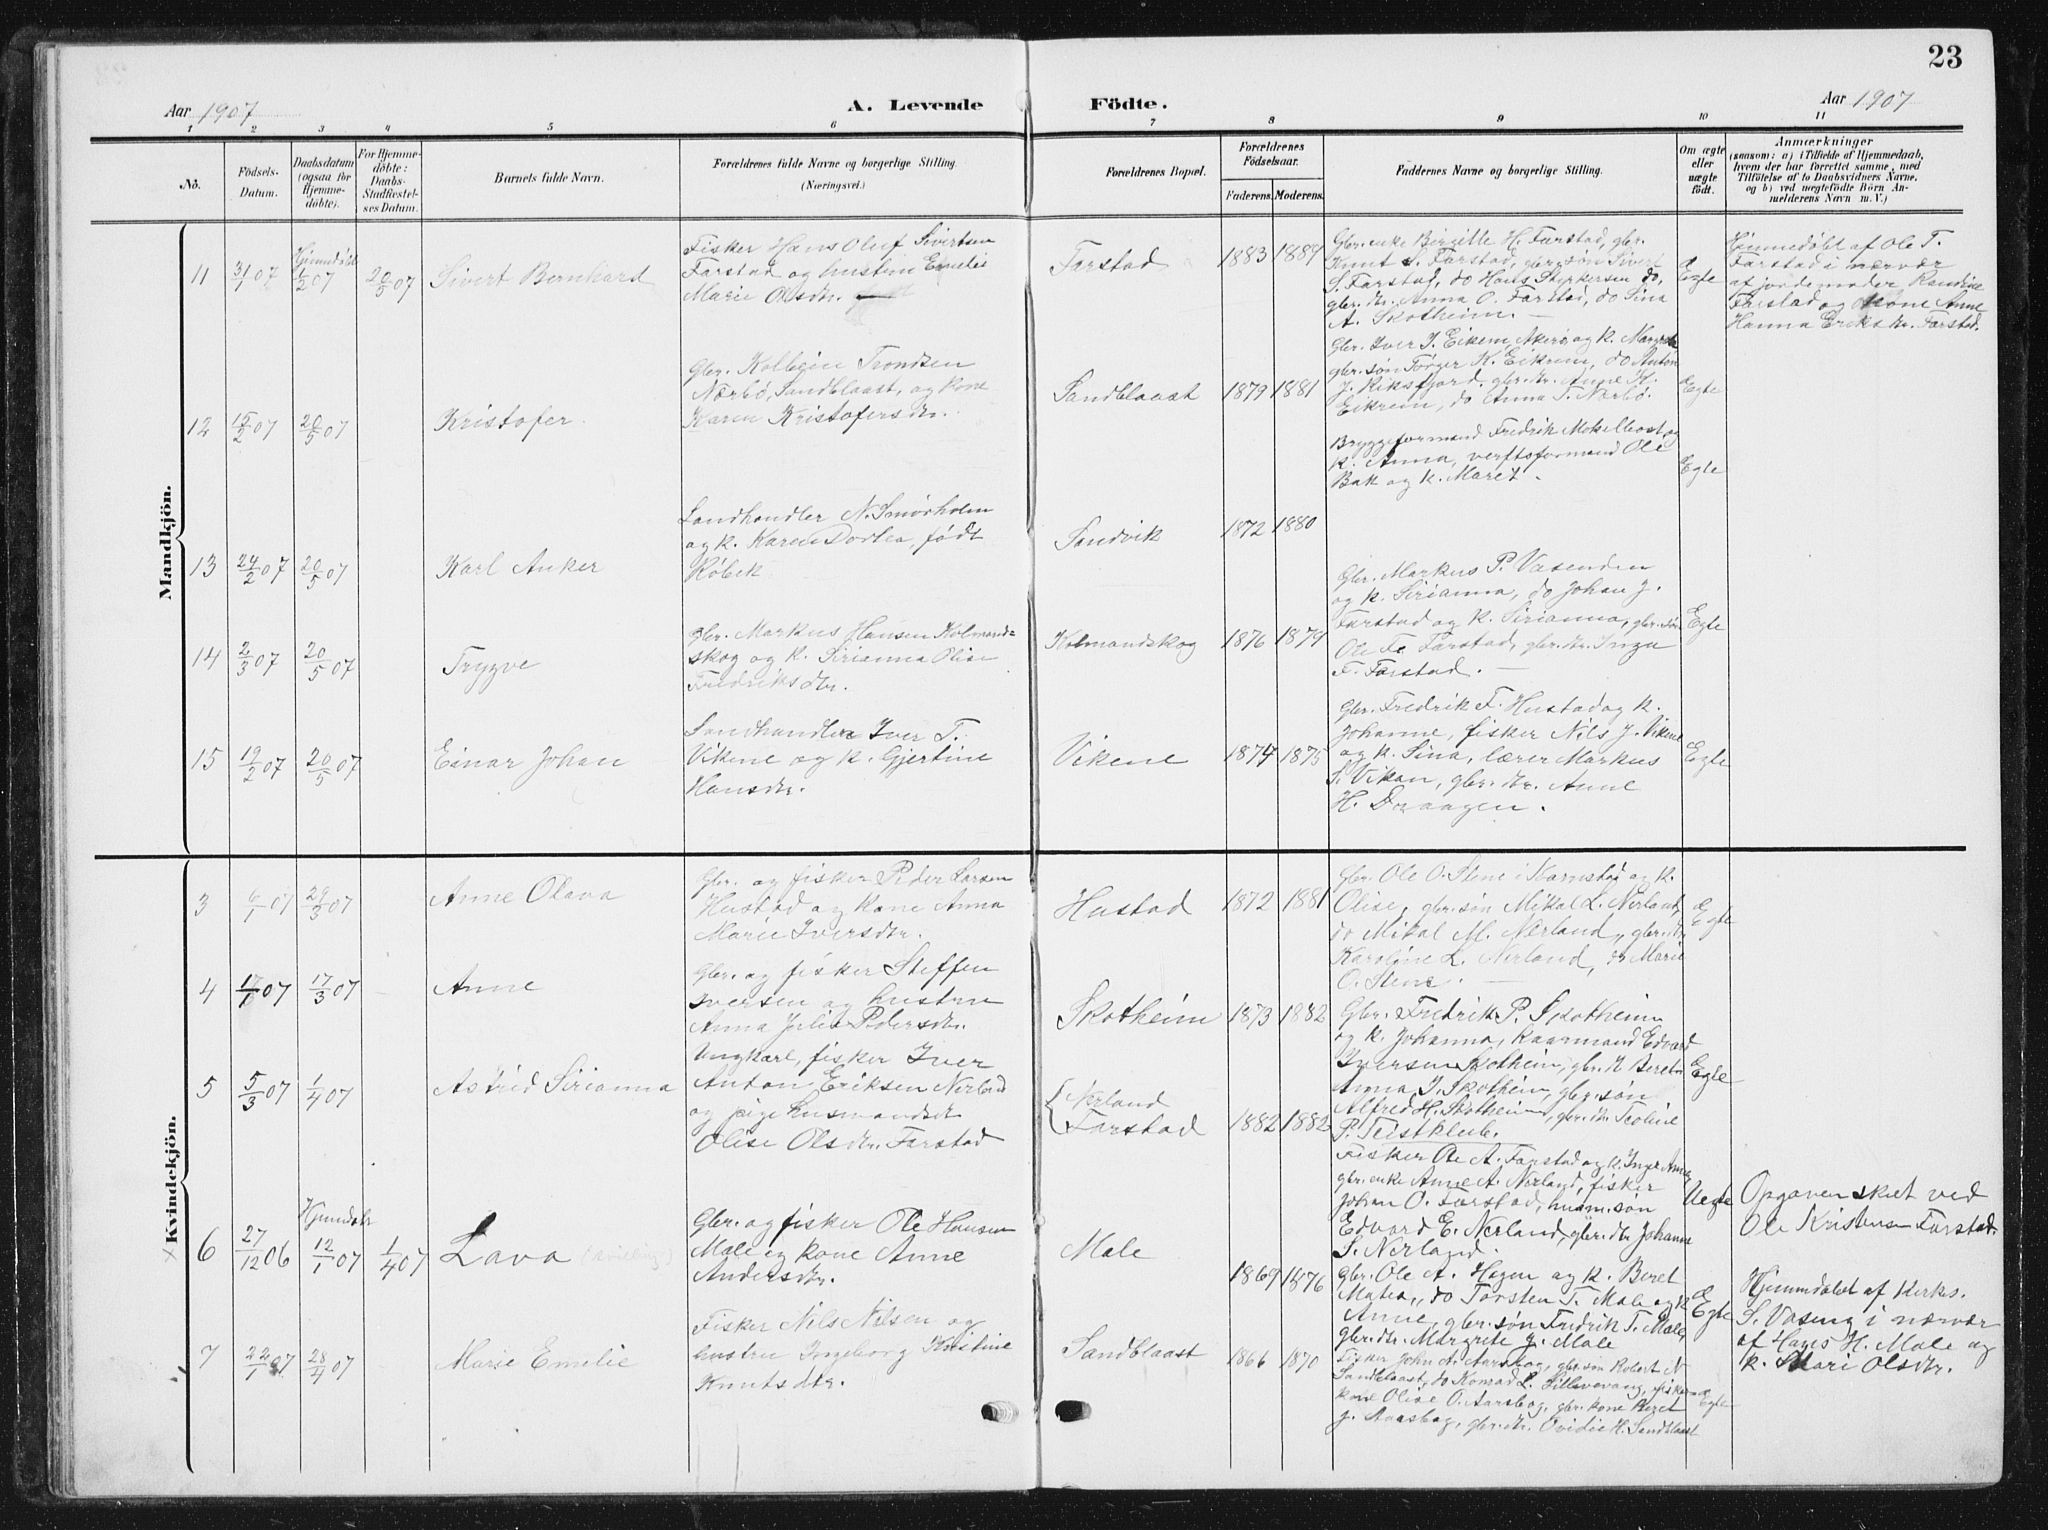 23
Aar 1907
A. Levende
Födte.
Aar 1907
1 2 3 4 5 6 7 8 9 10 11
No.
Födsels-
Datum.
Daabsdatum
(ogsaa for
Hjemme-
döbte).
For Hjemme-
döbte:
Daabs-
Stadfæstel-
ses Datum.
Barnets fulde Navn.
Forældrenes fulde Navne og borgerlige Stilling.
(Næringsvei.)
Forældrenes Bopæl.
Forældrenes
Födselsaar.
Faderens.
Moderens.
Faddernes Navne og borgerlige Stilling.
Om ægte
eller
uægte
födt.
Anmærkninger
(saasom: a) i Tilfælde af Hjemmedaab,
hvem der har forrettet samme, med
Tilföielse af to Daabsvidners Navne,
og b) ved uægtefödte Börn An-
melderens Navn m. V.)
Mandkjön.
11
31/1 07
Hjemmedøbt
1/2 07
20/5 07
Sivert Bernhard
Fisker Hans Oluf Sivertsen
Farstad og hustru Emelie
Marie Olsdtr.
Farstad
1883
1889
Gbr. enke Birgitte H. Farstad, gbr.
Knut S. Farstad, gbr. søn Sivert
S. Farstad, do Hans Styrkersen do,
gbr. dtr. Anna O. Farstad, do Sina
A. Skotheim.
Ægte
Hjemmedøbt af Ole T.
Farstad i nærvær
af jordemoder Randine
Farstad og kone Anne
Hanna Eriksdtr. Farstad.
12
15/2 07
20/5 07
Kristofer
Gbr. Kolbein Trondsen
Nærbø, Sandblaast, og kone
Karen Kristofersdtr.
Sandblaast
1879
1881
Gbr. Iver J. Eikem, Akerø og k. Margrete
gbr. søn Tørger K. Eikrem, do Anton
J. Riksfjord, gbr. dtr. Anne K.
Eikrem, do Anna T. Nærbø.
Ægte
13
24/2 07
20/5 07
Karl Anker
Landhandler N. Smørholm
og k. Karen Dortea, født
Røbek
Sandvik
1872
1880
Bryggeformand Fredrik Mokelbost og
k. Anna, verftsformand Ole
Bak og k. Maret.
Ægte
14
2/3 07
20/5 07
Trygve
Gbr. Markus Hansen Kolmands-
skog og k. Sirianna Olise
Fredriksdtr.
Kolmandskog
1876
1879
Gbr. Markus P. Vasenden
og k. Sirianna, do Johan J.
Farstad og k. Sirianna, gbr. søn
Ole F. Farstad, gbr. dtr. Inga
F. Farstad.
Ægte
15
19/2 07
20/5 07
Einar Johan
Landhandler Iver T.
Vikene og k. Gjertine
Hansdtr.
Vikene
1874
1875
Gbr. Fredrik F. Hustad og k.
Johanne, fisker Nils J. Vikene
og k. Sina, lærer Markus
S. Vikan, gbr. dtr. Anne
H. Draagen.
Ægte
Kvindekjön.
3
6/1 07
29/3 07
Anne Olava
Gbr. og fisker Peder Larsen
Hustad og kone Anna
Marie Iversdtr.
Hustad
1872
1881
Gbr. Ole O. Stene i Varnstad og k.
Olise, gbr. søn Mikal L. Nerland,
do Mikal M. Nerland, gbr. dtr.
Karoline L. Nerland, do Marie
O. Stene.
Ægte
4
17/1 07
17/3 07
Anne
Gbr. og fisker Steffen
Iversen og hustru
Anna Julia Pedersdtr.
Skotheim
1873
1882
Gbr. Fredrik P. Skotheim
og k. Johanna, kaarmand Edvard
Iversen Skotheim, gbr. k. Beret
Anna J. Skotheim, gbr. søn
Alfred H. Skotheim, gbr. dtr. Teoline
P. Teistklub.
Ægte
5
5/3 07
1/4 07
Astrid Sirianna
Ungkarl, fisker Iver
Anton Eriksen Nerland
og pige husmandsdtr.
Olise Olsdtr. Farstad
Nerland
Farstad
1882
1882
Fisker Ole A. Farstad og k. Inge Anna,
gbr. enke Anne A. Nerland, fisker
Johan O. Farstad, husm. søn
Edvard E. Nerland, gbr. dtr. Johanne
S. Nerland.
Uegte
Opgaven skjet ved
Ole Kristensen Farstad.
6
27/12 06
Hjemdøbt
12/1 07
1/4 07
Lava (tvilling)
Gbr. og fisker Ole Hansen
Male og kone Anne
Andersdtr.
Male
1869
1876
Gbr. Ole A. Hagen og k. Beret
Matea, do Torsten T. Male og k.
Anne, gbr. søn Fredrik T. Male,
gbr. dtr. Margrete J. Male
Ægte
Hjemmdøbt af kirks.
S. Vaseng i nærvær
af Hans H. Male og
k. Mari Olsdtr.
7
22/1 07
28/4 07
Marie Emelie
Fisker Nils Nilsen og
hustru Ingeborg Kristine
Knutsdtr.
Sandblaast
1866
1870
Fisker John A. Aarsbog, gbr. søn Robert N.
Sandblaast, do Konrad L. Lillevevang, fisker-
kone Olise O. Aarsbog, gbr. kone Beret
J. Aarsbog, gbr. dtr. Ovidie H. Sandblaast
Ægte